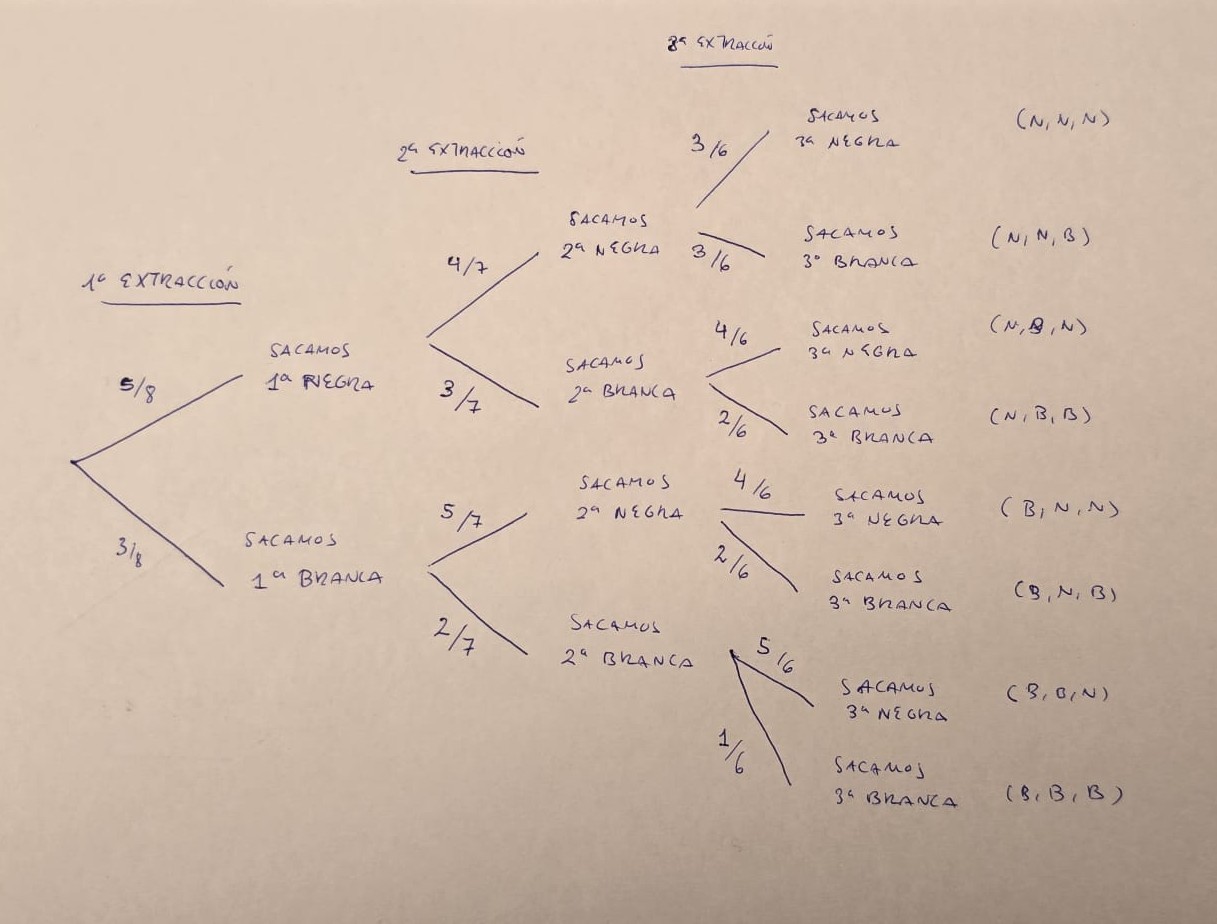 3ª EXTRACCIÓN
SACAMOS
3ª NEGRA
(N, N, N)
3/6
2ª EXTRACCIÓN
SACAMOS
2ª NEGRA
3/6
SACAMOS
3ª BRANCA
(N, N, B)
4/7
1ª EXTRACCIÓN
SACAMOS
1ª NEGRA
5/8
3/7
SACAMOS
2ª BRANCA
4/6
SACAMOS
3ª NEGRA
(N, B, N)
2/6
SACAMOS
3ª BRANCA
(N, B, B)
3/8
SACAMOS
1ª BRANCA
5/7
SACAMOS
2ª NEGRA
4/6
SACAMOS
3ª NEGRA
(B, N, N)
2/6
SACAMOS
3ª BRANCA
(B, N, B)
2/7
SACAMOS
2ª BRANCA
5/6
SACAMOS
3ª NEGRA
(B, B, N)
1/6
SACAMOS
3ª BRANCA
(B, B, B)